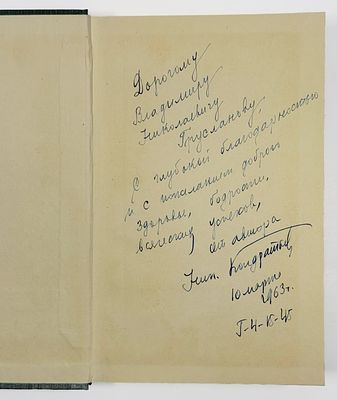 Дорогому
Владимиру
Николаевичу
Русланову
С глубокой благодарностью
и с пожеланием доброго
здоровья, бодрости,
всяческих успехов,
от автора
Ник. Кондратьев
10 марта
1963 г.
Г-4-15-45